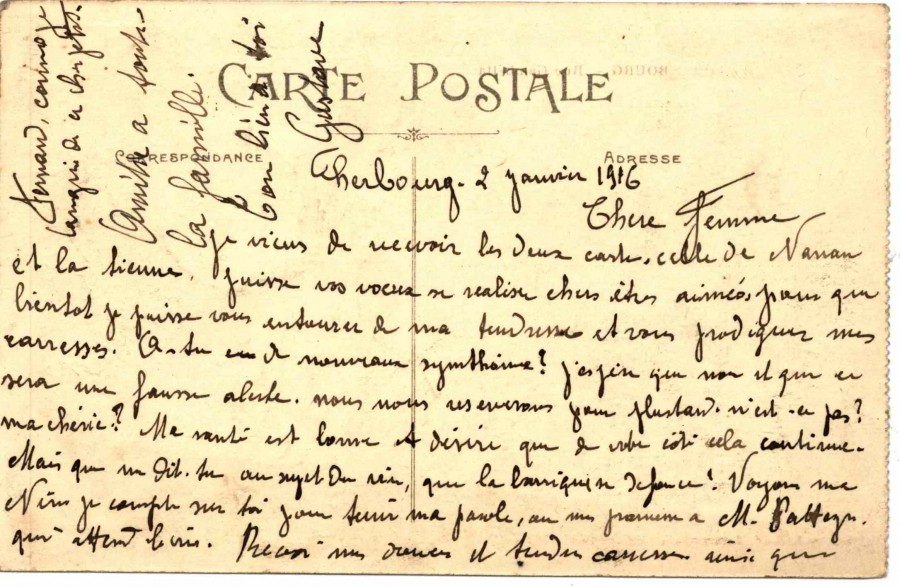 CARTE POSTALE
CORRESPONDANCE
ADRESSE
Cherbourg. 2 janvier 1916
Chere Femme
Je viens de recevoir les deux carte, celle de Nanan
et la tienne, puisse vos voeux se realiser chers êtres aimées pour que
bientot je puisse vous entourer de ma tendresse et vous prodiguer mes
carresses. A-tu eu de nouveaux symthome? j'espère que non et que ce
sera une fausse alerte. nous nous reserverons pour plustard. n'est-ce pas?
ma chérie? Ma santé est bonne et désire que de votre côté cela continue.
Mais que me dit-tu au sujet du vin, que la barrique se defonce! Voyons ma
je compte sur toi pour tenir ma parole, au a M.
qui attend le vin. Recoi mes douces et tendres caresses ainsi que
Fernand, comme je
langui de ce cher petit.
Amitie a toute
la famille.
Ton bien a toi
Gustave